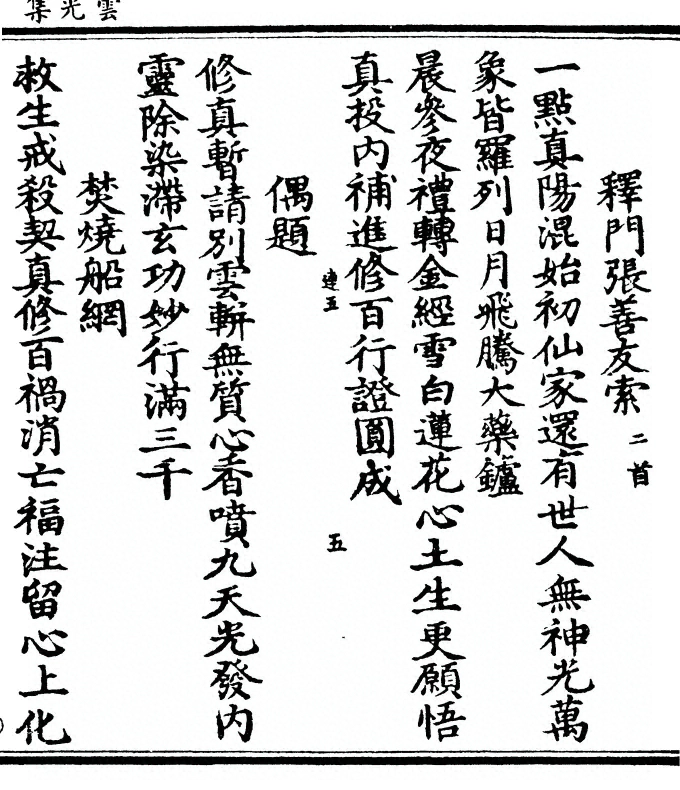 雲光集
釋門張善友索 二首
一點真陽混始初仙家還有世人無神光萬
象皆羅列日月飛騰大藥鑪
晨參夜禮轉金經雪白蓮花心土生更願悟
真投内補進修百行證圓成
連五 五
偶題
修真暫請別雲軿無質心香噴九天光發内
靈除染滯玄功妙行滿三千
焚燒船網
救生戒殺契真修百禍消亡福注留心上化